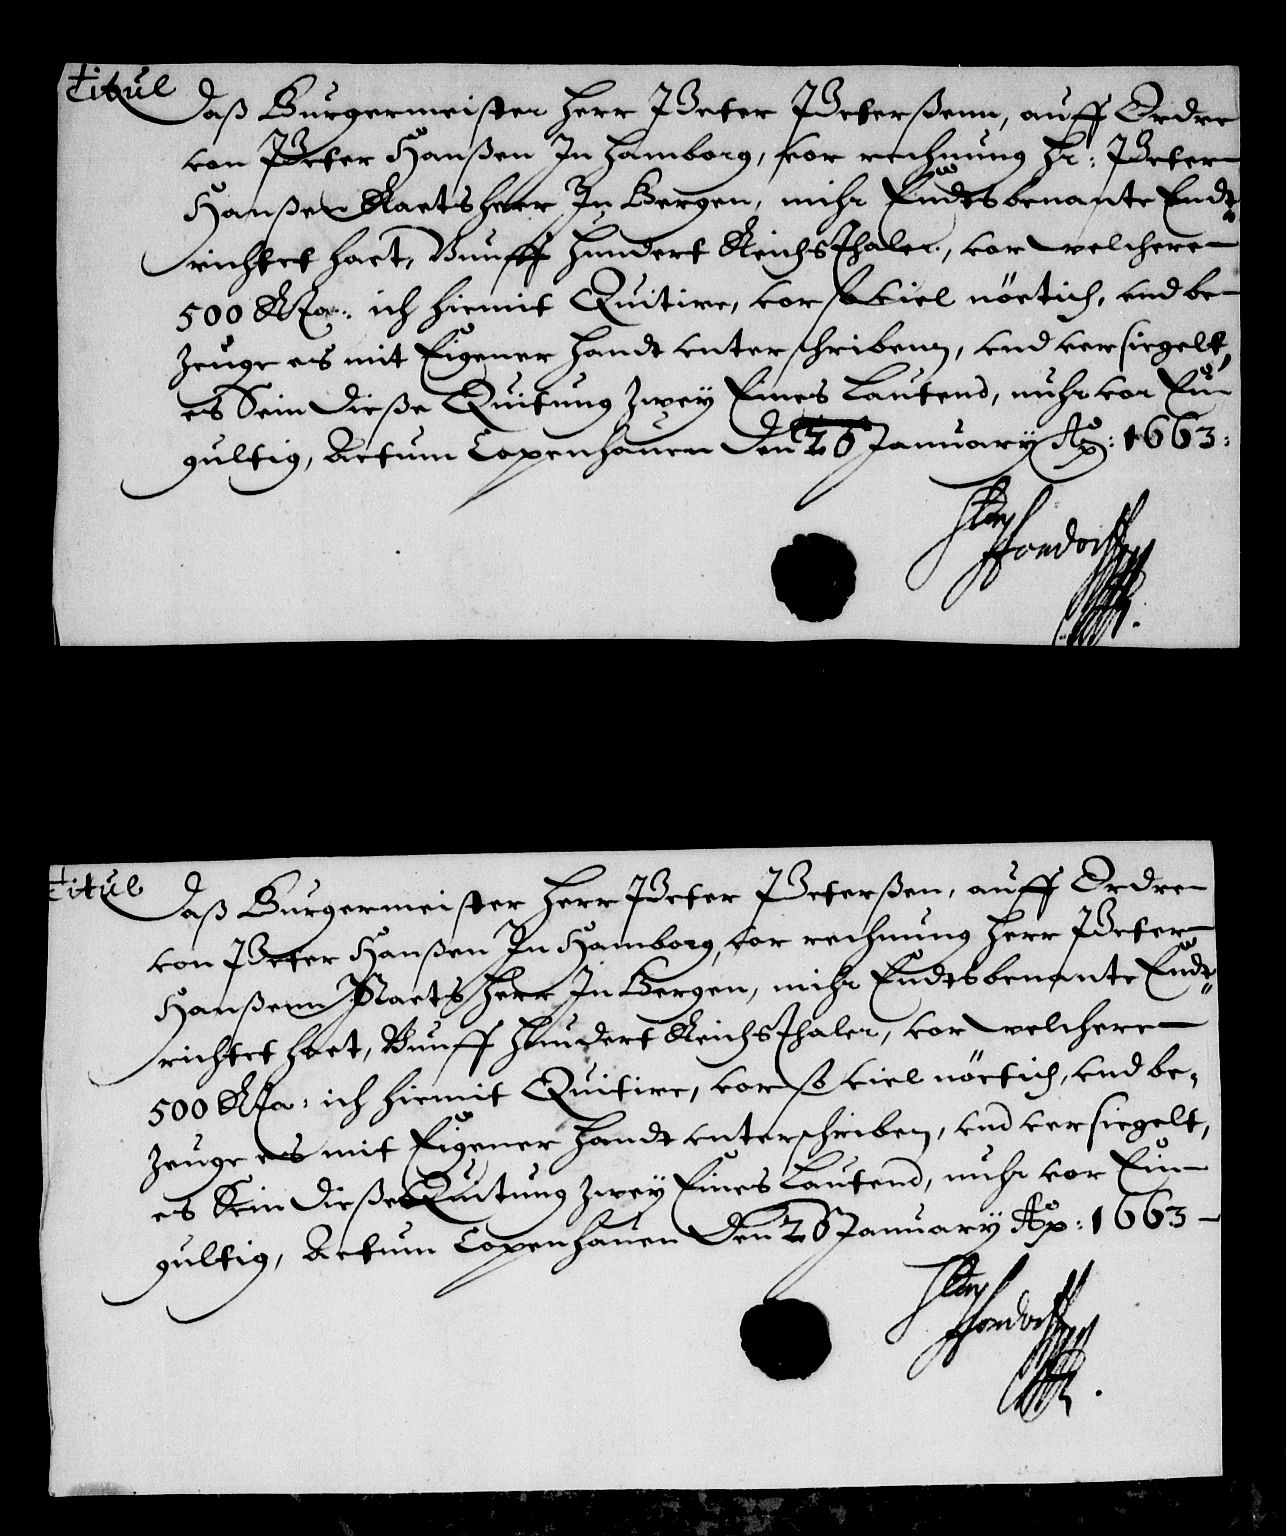 Titul
Daß Burgermeister Herr Peter Peterßenn, auff Ordre
von Peter Hanßen In Hamborg, vor rechnung Hr: Peter
Hanßen Raetsherr In Bergen, mihr Endtsbenante Endt„
richtet haet, Vunff Hundert ReichsThaler, vor welchere
500 RTa: ich hiemit Quitire, vor so viel nöetich, vnd be-
Zeuge es mit Eigener Handt vnterschriben, vnd versiegelt,
es Sein dieße Quitung Zwey Eines Lautend, nuhr vor Ein
gultig, Actum Copenhauen den 26 January Ao: 1663:
Titul
Daß Burgermeister Herr Peter Peterßen, auff Ordre
von Peter Hanßen In Hamborg, vor rechnung Herr Peter
Hanßenn Raets Herr In Bergen, mihr Endtsbenante Endt„
richtet haet, Vunff Hundert ReichsThaler, vor welchere
500 RTa: ich hiemit Quitire, vor so viel nöetich, vnd be-
Zeuge es mit Eigener Handt vnterschriben, vnd versiegelt,
es Sein dieße Quitung Zwey Eines Lautend, nuhr vor Ein
gultig, Actum Copenhauen den 26 January Ao: 1663